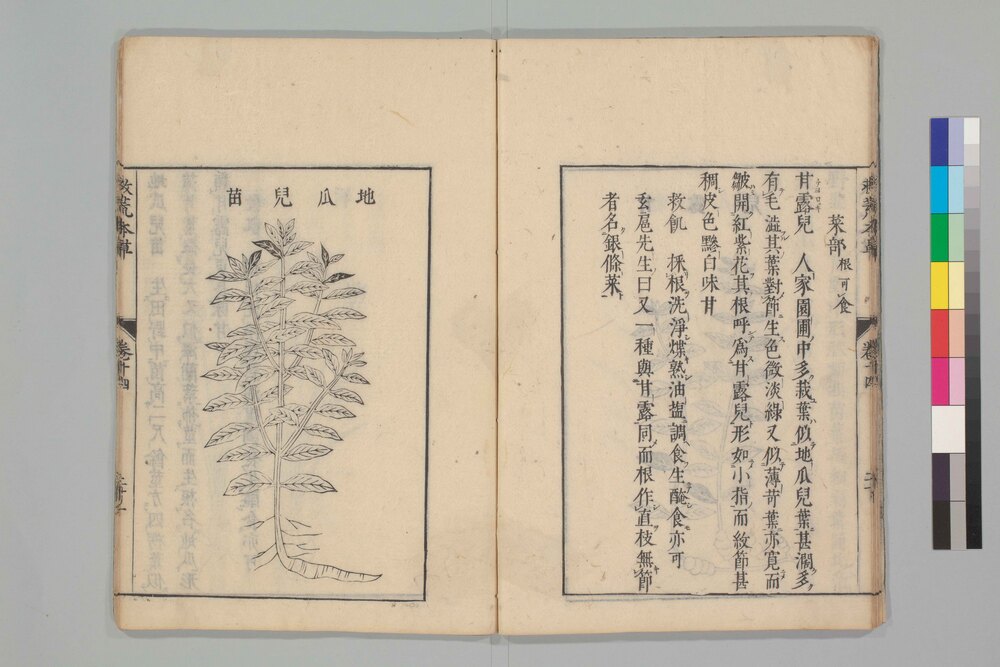 菜部 根可食
甘露兒 人家園圃中多栽葉似地瓜兒葉甚濶多
有毛澁其葉對節生色微淡綠又似薄荷葉亦寛而
皺開紅紫花其根呼爲甘露兒形如小指而紋節甚
稠皮色黲白味甘
救飢 採根洗淨煠熟油塩調食生醃食亦可
玄扈先生曰又一種與甘露同而根作直枝無節
者名銀條菜
地瓜兒苗
救荒本草
卷十四